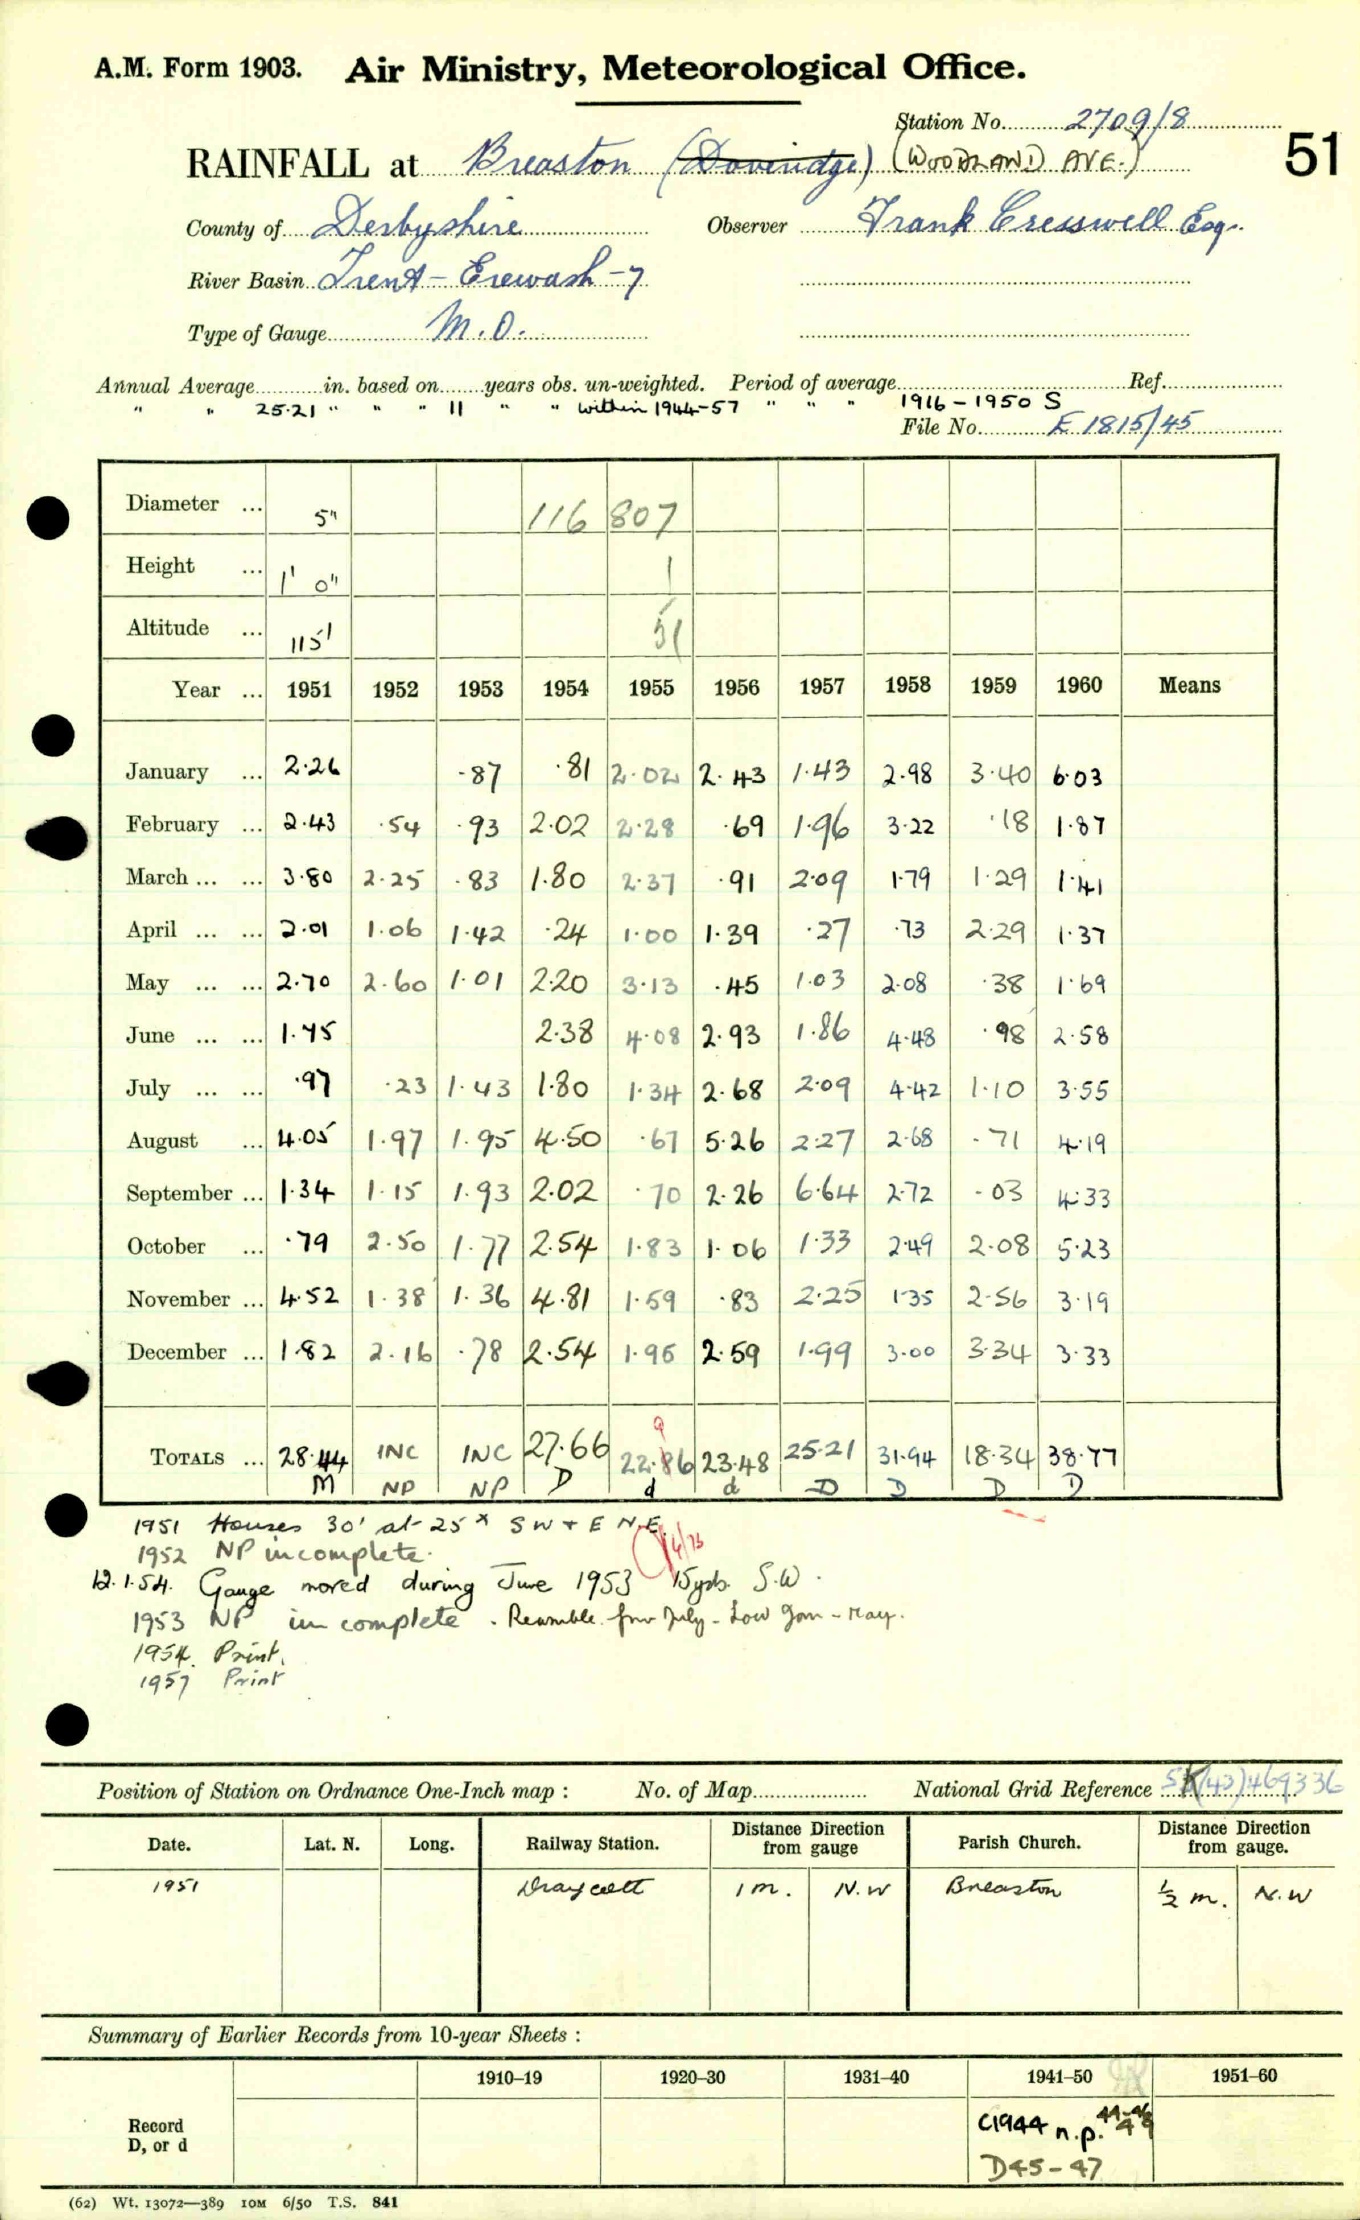 A.M. Form 1903. Air Ministry, Meteorological Office.
Station No. 2709/8
RAINFALL at Breaston (Doveridge) (WOODLAND AVE.) 51
County of Derbyshire Observer Frank Cresswell Esq.
River Basin Trent - Erewash - 7
Type of Gauge M.O.
Annual Average in. based on years obs. un-weighted. Period of average Ref.
" " 25.21 " " " 11 " " within 1944-57 " " " 1916-1950 S
File No. E 1815/45
Diameter ... 5" 116 807
Height ... 1' 0" 1
Altitude ... 115' 51
Year ... 1951 1952 1953 1954 1955 1956 1957 1958 1959 1960 Means
January ... 2.26 .87 .81 2.02 2.43 1.43 2.98 3.40 6.03
February ... 2.43 .54 .93 2.02 2.28 .69 1.96 3.22 .18 1.87
March ... ... 3.80 2.25 .83 1.80 2.37 .91 2.09 1.79 1.29 1.41
April ... ... 2.01 1.06 1.42 .24 1.00 1.39 .27 .73 2.29 1.37
May ... ... 2.70 2.60 1.01 2.20 3.13 .45 1.03 2.08 .38 1.69
June ... ... 1.75 2.38 4.08 2.93 1.86 4.48 .98 2.58
July ... ... .97 .23 1.43 1.80 1.34 2.68 2.09 4.42 1.10 3.55
August ... 4.05 1.97 1.95 4.50 .67 5.26 2.27 2.68 .71 4.19
September ... 1.34 1.15 1.93 2.02 .70 2.26 6.64 2.72 .03 4.33
October ... .79 2.50 1.77 2.54 1.83 1.06 1.33 2.49 2.08 5.23
November ... 4.52 1.38 1.36 4.81 1.59 .83 2.25 1.35 2.56 3.19
December ... 1.82 2.16 .78 2.54 1.96 2.59 1.99 3.00 3.34 3.33
9
TOTALS ... 28.44 INC INC 27.66 22.86 23.48 25.21 31.94 18.34 38.77
M NP NP D d d D D D D
1951 Houses 30' at 25x SW + E NE.
1952 NP incomplete.
12.1.54. Gauge moved during June 1953 15yds. S.W.
1953 NP in complete. from July - Low Jan - May.
1954. Print.
1957 Print
Position of Station on Ordnance One-Inch map : No. of Map National Grid Reference SK(43)469336
Date. Lat. N. Long. Railway Station. Distance Direction from gauge Parish Church. Distance Direction from gauge.
1951 Draycott 1 m. N.W Breaston ½ m. N.W
Summary of Earlier Records from 10-year Sheets :
1910–19 1920–30 1931–40 1941–50 1951–60
Record C1944 n.p. 44-
D, or d D45-47
(62) Wt. 13072—389 10M 6/50 T.S. 841